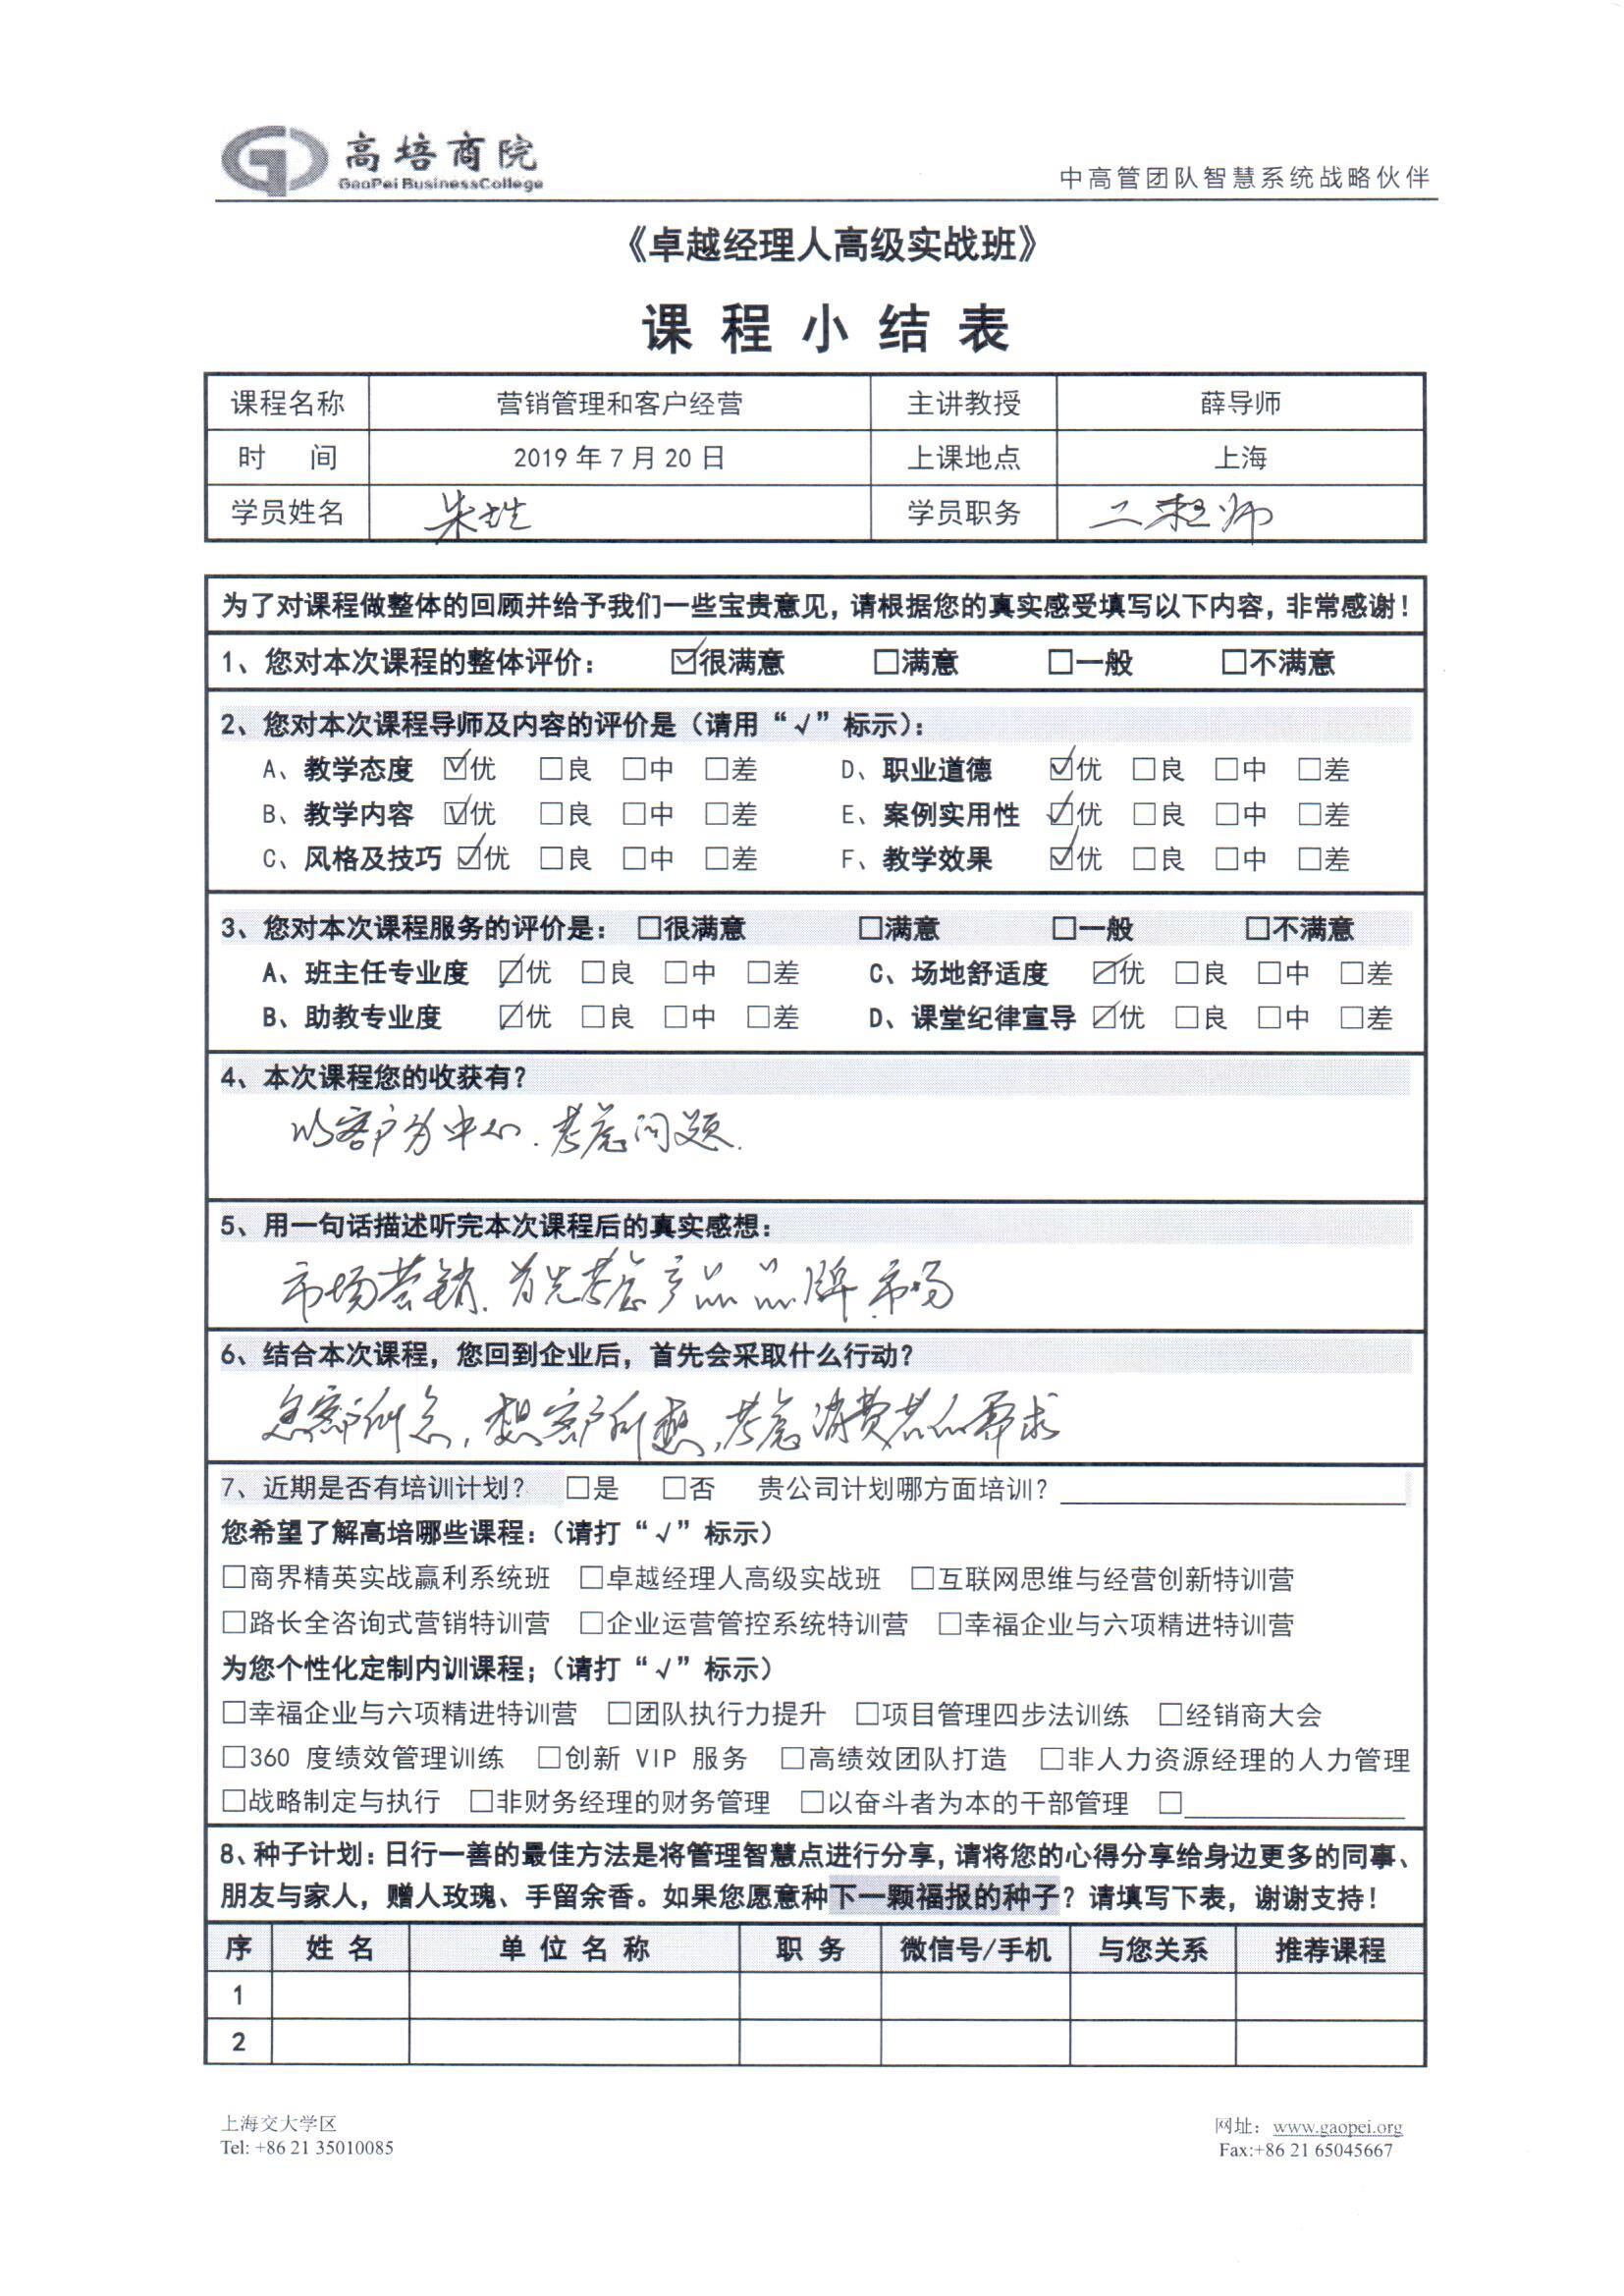 高培商院
GaoPei BusinessCollege
中高管团队智慧系统战略伙伴
《卓越经理人高级实战班》
课程小结表
课程名称 营销管理和客户经营 主讲教授 薛导师
时 间 2019年7月20日 上课地点 上海
学员姓名 朱 学员职务 工程师
为了对课程做整体的回顾并给予我们一些宝贵意见，请根据您的真实感受填写以下内容，非常感谢！
1、您对本次课程的整体评价： ☑很满意 □满意 □一般 □不满意
2、您对本次课程导师及内容的评价是（请用“√”标示）：
A、教学态度 ☑优 □良 □中 □差 D、职业道德 ☑优 □良 □中 □差
B、教学内容 ☑优 □良 □中 □差 E、案例实用性 ☑优 □良 □中 □差
C、风格及技巧 ☑优 □良 □中 □差 F、教学效果 ☑优 □良 □中 □差
3、您对本次课程服务的评价是： □很满意 □满意 □一般 □不满意
A、班主任专业度 ☑优 □良 □中 □差 C、场地舒适度 ☑优 □良 □中 □差
B、助教专业度 ☑优 □良 □中 □差 D、课堂纪律宣导 ☑优 □良 □中 □差
4、本次课程您的收获有？
以客户为中心.考虑问题.
5、用一句话描述听完本次课程后的真实感想：
市场营销.首先考虑产品品牌.市场
6、结合本次课程，您回到企业后，首先会采取什么行动？
急客户所急,想客户所想,考虑消费者的需求
7、近期是否有培训计划？ □是 □否 贵公司计划哪方面培训？
您希望了解高培哪些课程：（请打“√”标示）
□商界精英实战赢利系统班 □卓越经理人高级实战班 □互联网思维与经营创新特训营
□路长全咨询式营销特训营 □企业运营管控系统特训营 □幸福企业与六项精进特训营
为您个性化定制内训课程；（请打“√”标示）
□幸福企业与六项精进特训营 □团队执行力提升 □项目管理四步法训练 □经销商大会
□360 度绩效管理训练 □创新 VIP 服务 □高绩效团队打造 □非人力资源经理的人力管理
□战略制定与执行 □非财务经理的财务管理 □以奋斗者为本的干部管理 □
8、种子计划：日行一善的最佳方法是将管理智慧点进行分享，请将您的心得分享给身边更多的同事、
朋友与家人，赠人玫瑰、手留余香。如果您愿意种下一颗福报的种子？请填写下表，谢谢支持！
序 姓名 单位名称 职务 微信号/手机 与您关系 推荐课程
1
2
上海交大学区 网址：www.gaopei.org
Tel: +86 21 35010085 Fax:+86 21 65045667